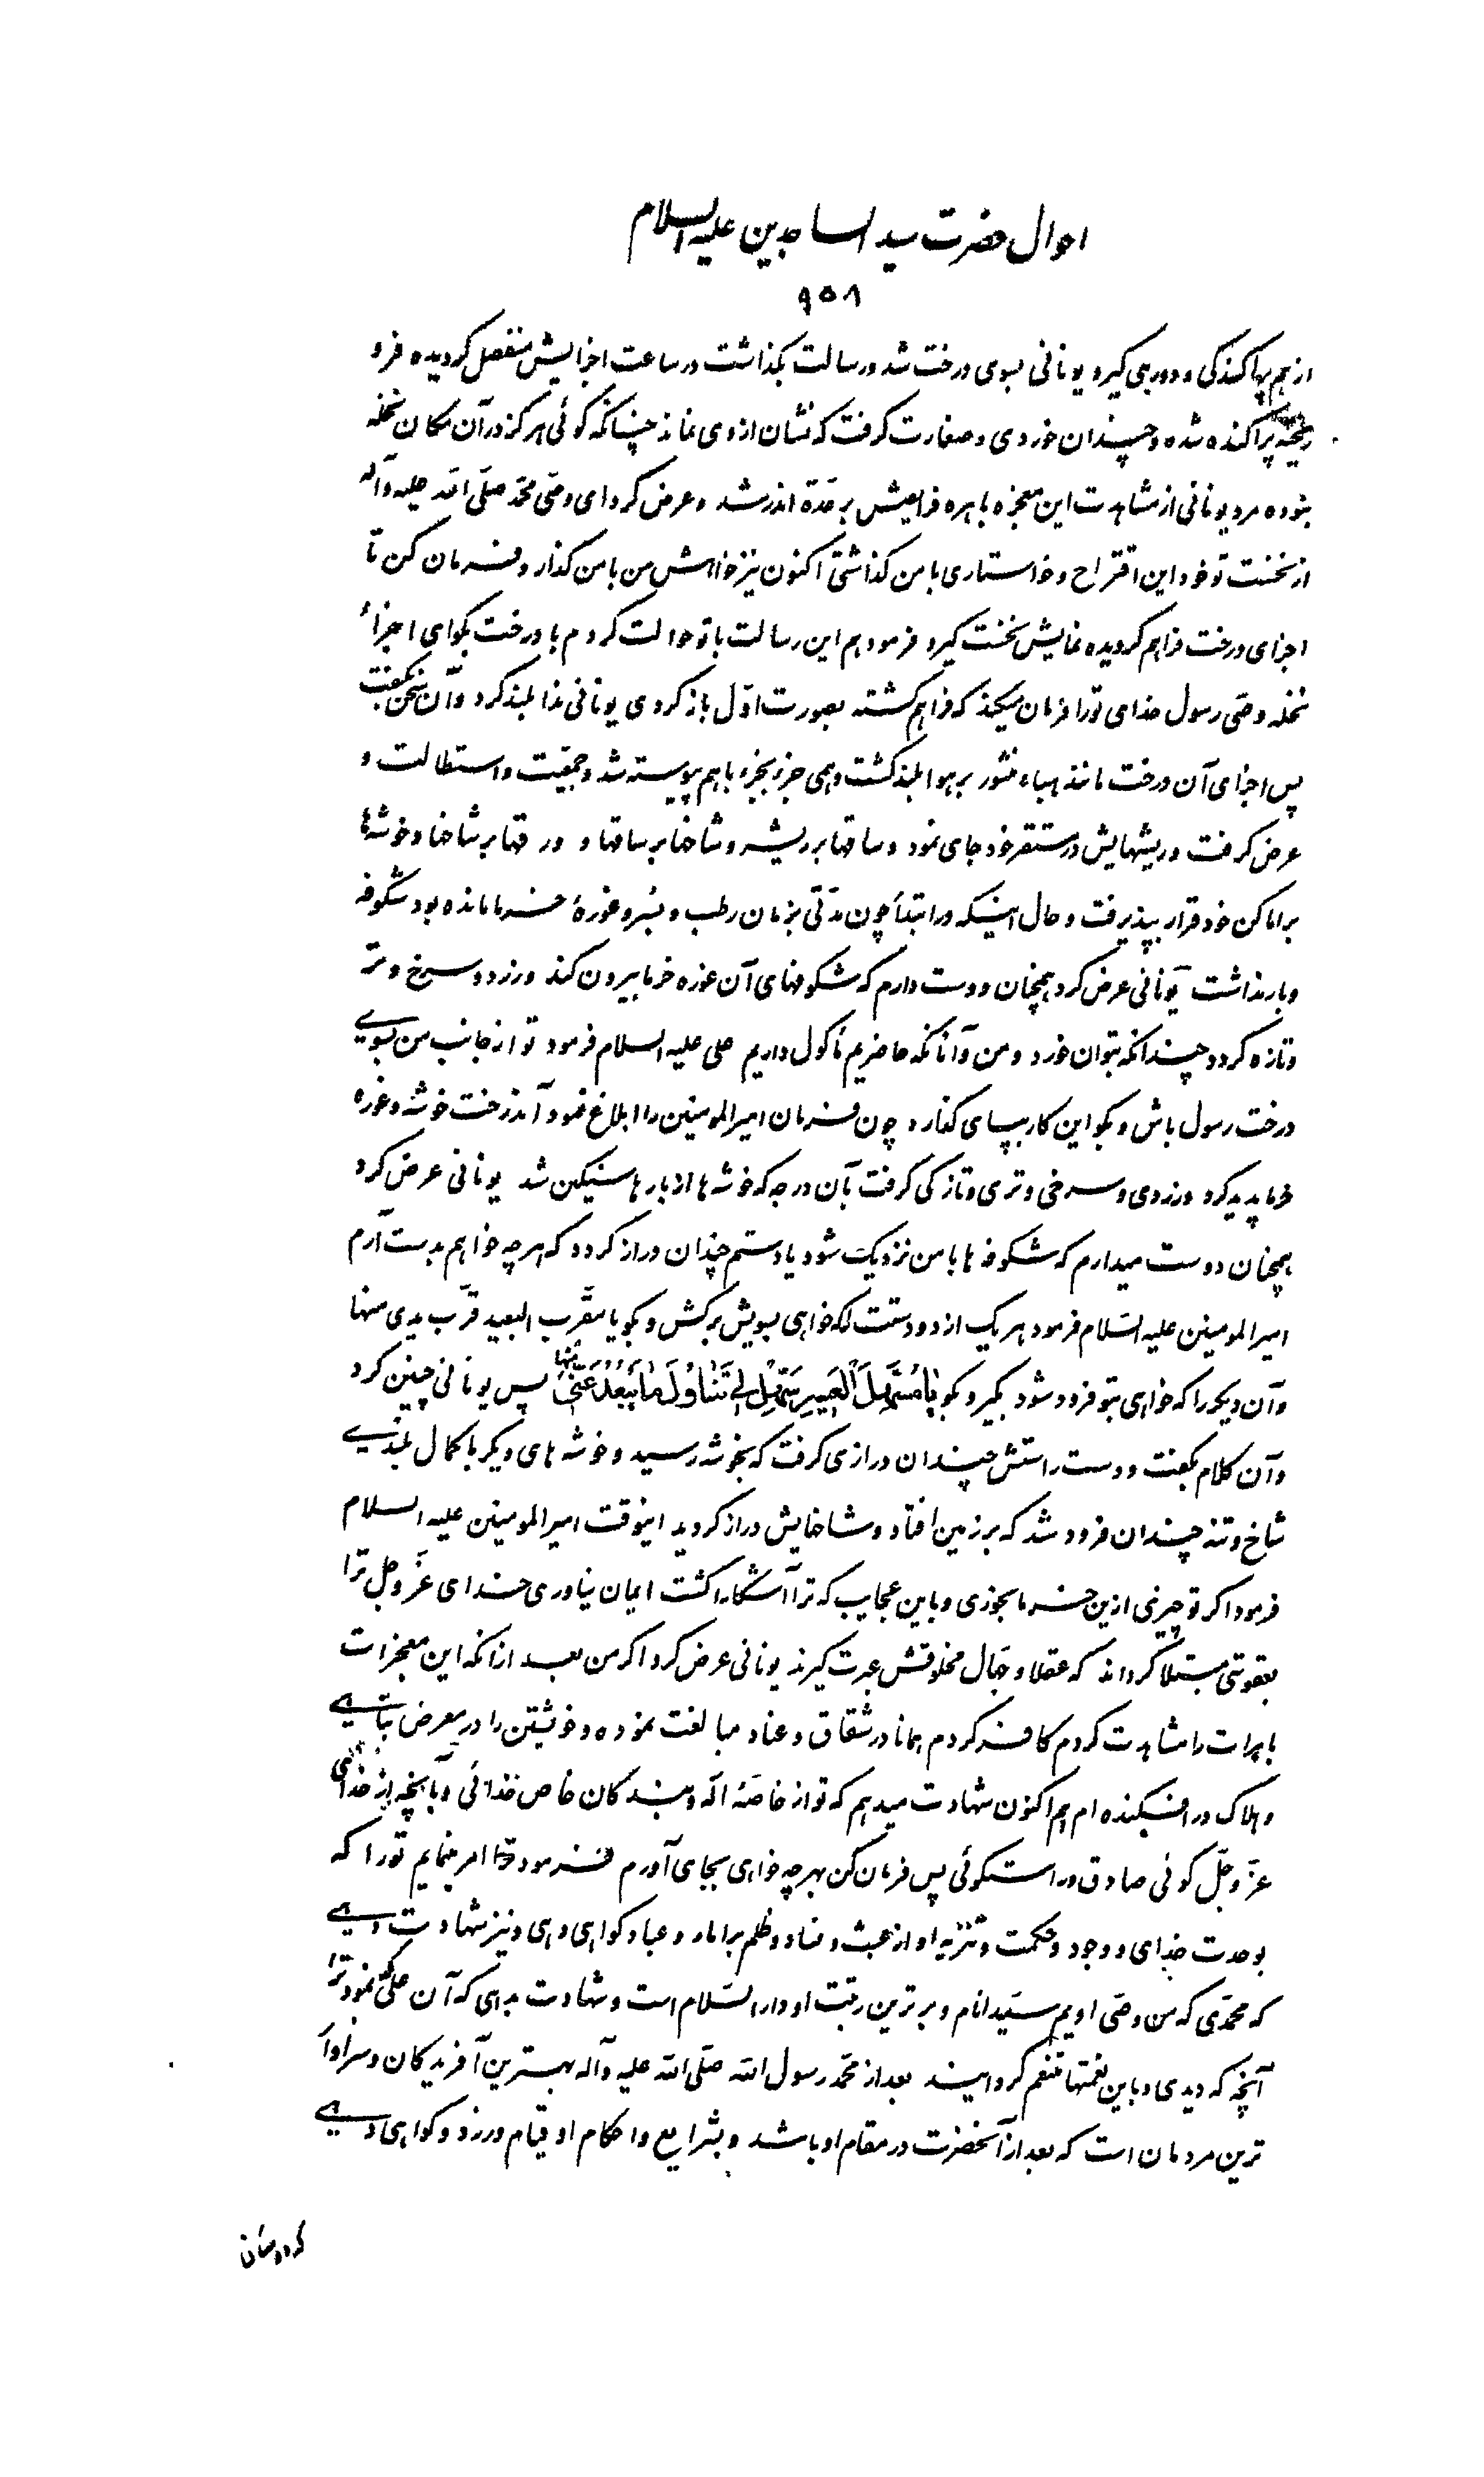 احوال حضرت سید الساجدین علیه السلام
۹۵۸
از هم پراکندکی و دوری کیرد یونانی بسوی درخت شد و رسالت بکذاشت در ساعت اجزایش منفصل کردیده فرو
ریخته پراکنده شده و چندان خوردی و صغارت کرفت که نشان از وی نماند چنانکه کوئی هرکز در آن مکان نخله
نبوده مرد یونانی از مشاهدت این معجزه باهره فرایصش برعدة اندر شد و عرض کرد ای وصی محمد صلی الله علیه وآله
از نخست تو خود این اقتراح و خواستاری با من کذاشتی اکنون نیز خواهش من با من کذار و فرمان کن تا
اجزای درخت فراهم کردیده نمایش نخست کیرد فرمود هم این رسالت با تو حوالت کردم با درخت بکو ای اجزاء
نخله وصی رسول خدای تو را فرمان میکند که فراهم کشته بصورت اول باز کردی یونانی ندا بلند کرد و آن سخن بکفت
پس اجزای آن درخت مانند هباء منثور بر هوا بلند کشت و همی جزء بجزء با هم پیوسته شد و جمعیت و استطالت و
عرض کرفت و ریشهایش در مستقر خود جای نمود و ساقها بر ریشه و شاخها بر ساقها و ورقها بر شاخها و خوشها
بر اماکن خود قرار بپذیرفت و حال اینکه در ابتداء چون مدتی بزمان رطب و بسر و غورهٔ خرما مانده بود شکوفه
و بار نداشت یونانی عرض کرد همچنان دوست دارم که شکوفهای آن غوره خرما بیرون کند و زرد و سرخ و تر
و تازه کردد چندانکه بتوان خورد و من و آنانکه حاضریم مأکول داریم علی علیه السلام فرمود تو از جانب من بسوی
درخت رسول باش و بکو این کار بپای کذارد چون فرمان امیرالمومنین را ابلاغ نمود آندرخت خوشه و غوره
خرما پدید کرد و زردی و سرخی و تری و تازکی کرفت بآن درجه که خوشه ها از بارها سنکین شد یونانی عرض کرد
همچنان دوست میدارم که شکوفه ها با من نزدیک شود یا دستم چندان دراز کردد که هر چه خواهم بدست آرم
امیرالمومنین علیه السلام فرمود هر یک از دو دستت که خواهی بسویش برکش و بکو یا مقرب البعید قرب یدی منها
و آن دیکر را که خواهی بتو فرود شود بکیر و بکو یا مسهل العسیر سهل لی تناول ما یبعد عنی منها پس یونانی چنین کرد
و آن کلام بکفت و دست راستش چندان درازی کرفت که بخوشه رسید و خوشه های دیکر با کمال بلندی
شاخ و تنه چندان فرود شد که بر زمین افتاد و شاخهایش دراز کردید اینوقت امیرالمومنین علیه السلام
فرمود اکر تو چیزی ازین خرما بخوری و باین عجایب که ترا آشکارا کشت ایمان نیاوری خدای عز وجل ترا
بعقوبتی مبتلا کرداند که عقلا و جهال مخلوقش عبرت کیرند یونانی عرض کرد اکر من بعد از آنکه این معجزات
باهرات را مشاهدت کردم کافر کردم همانا در شقاق و عناد مبالغت نموده و خویشتن را در معرض تباهی
و هلاک در افکنده ام هم اکنون شهادت میدهم که تو از خاصهٔ اله و بندکان خاص خدائی و بآنچه از خدای
عز وجل کوئی صادق و راستکوئی پس فرمان کن بهر چه خواهی بجای آورم فرمود امر مینمایم تو را که
بوحدت خدای و وجود و حکمت و تنزیه او از عبث و فساد و ظلم بر اماء و عباد کواهی دهی و نیز شهادت دهی
که محمدی که من وصی اویم سید انام و برترین رتبت او دارالسلام است و شهادت بدهی که آن علی که نمود ترا
آنچه که دیدی و باین نعمتها متنعم کردانید بعد از محمد رسول الله صلی الله علیه وآله بهترین آفریدکان و سزاوار
ترین مردمان است که بعد از آنحضرت در مقام او باشد و بشرایع و احکام او قیام ورزد و کواهی دهی
که دوستان